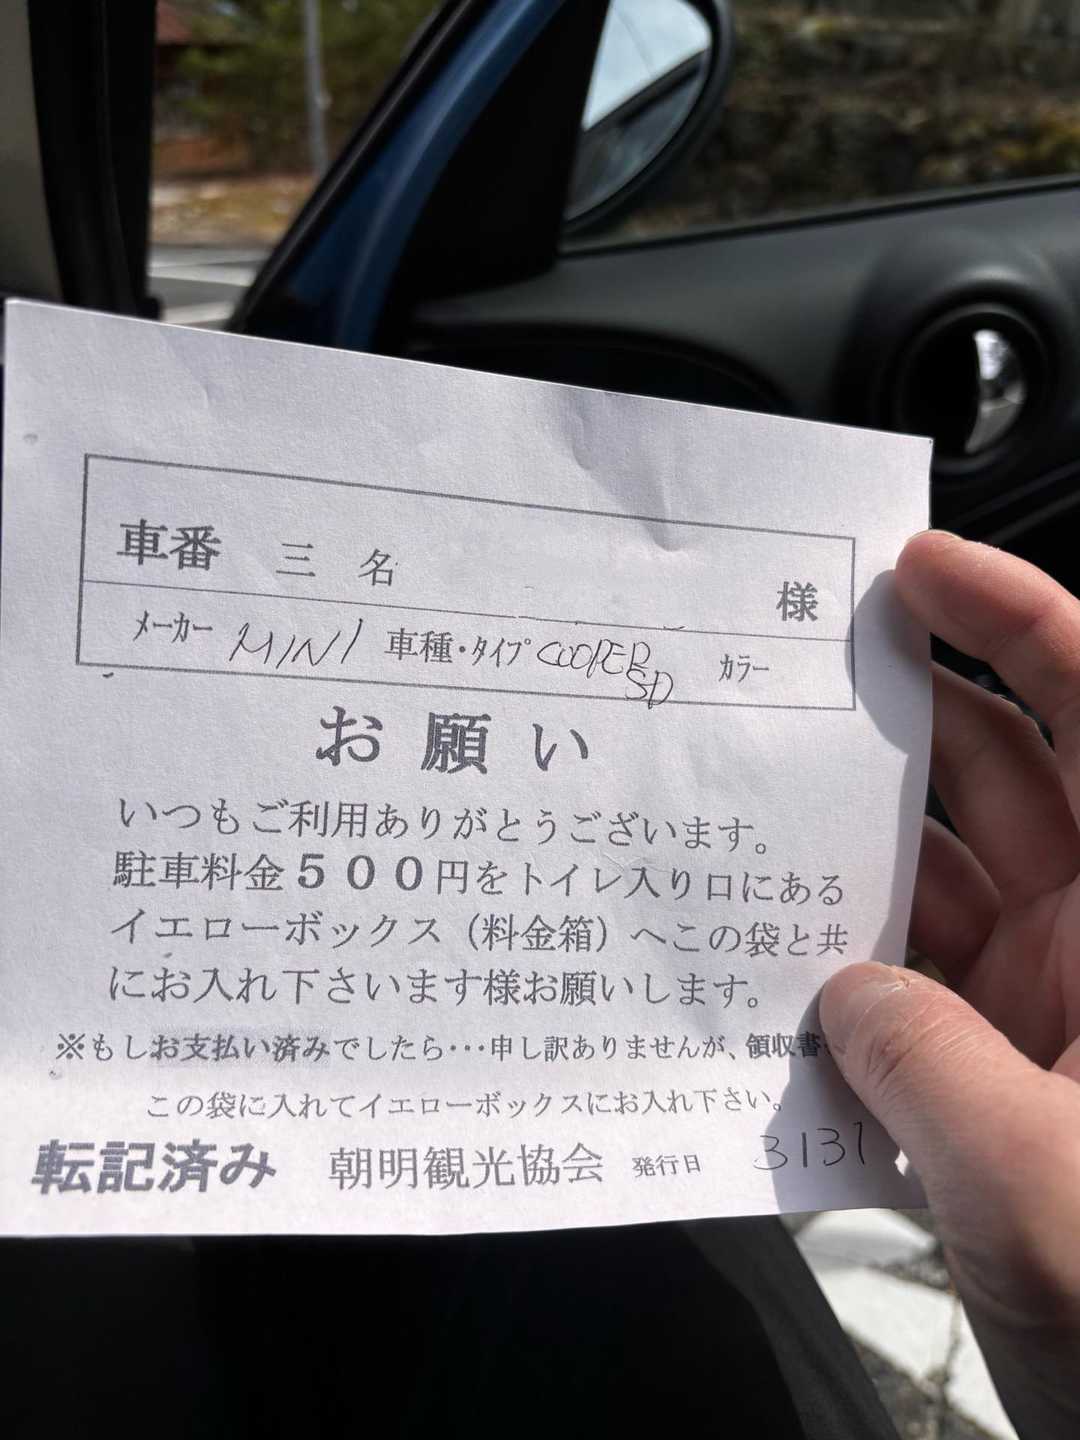 車番 三 名 様
メーカー MINI 車種・タイプ COOPER SD カラー
お願い
いつもご利用ありがとうございます。
駐車料金５００円をトイレ入り口にある
イエローボックス（料金箱）へこの袋と共
にお入れ下さいます様お願いします。
※もしお支払い済みでしたら･･･申し訳ありませんが、領収書
この袋に入れてイエローボックスにお入れ下さい。
転記済み 朝明観光協会 発行日 3131